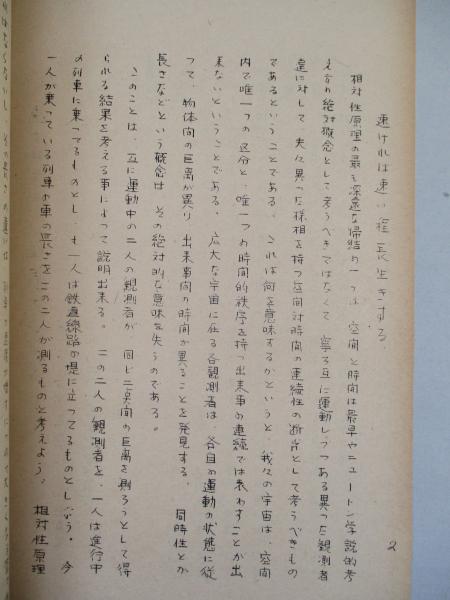 2
速ければ速い程長生きする。
相対性原理の最も深遠な帰結の一つは 空間と時間は最早やニュートン学説的考
え方の絶対概念として考うべきではなくて 寧ろ互に運動しつつある異った観測者
達に対して夫々異った様相を持つ空間対時間の連続性の断片として考うべきもの
であるということである。これは何を意味するかというと 我々の宇宙は、空間
内で唯一つの区分と、唯一つの時間的秩序を持つ出来事の連続では表わすことが出
来ないということである。広大な宇宙に在る各観測者は、各自の運動の状態に従
って、物体間の距離が異り 出来事間の時間が異ることを発見する。 同時性とか
長さなどという概念は その絶対的な意味を失うのである。
このことは、互に運動中の二人の観測者が 同じ二点間の距離を測ろうとして得
られる結果を考える事によって説明出来る。 この二人の観測者を、一人は進行中
の列車に乗ってるものとし、も一人は鉄道線路の堤に立ってるものとしよう。今
一人が乗っている列車の車の長さをこの二人が測るものと考えよう。 相対性原理